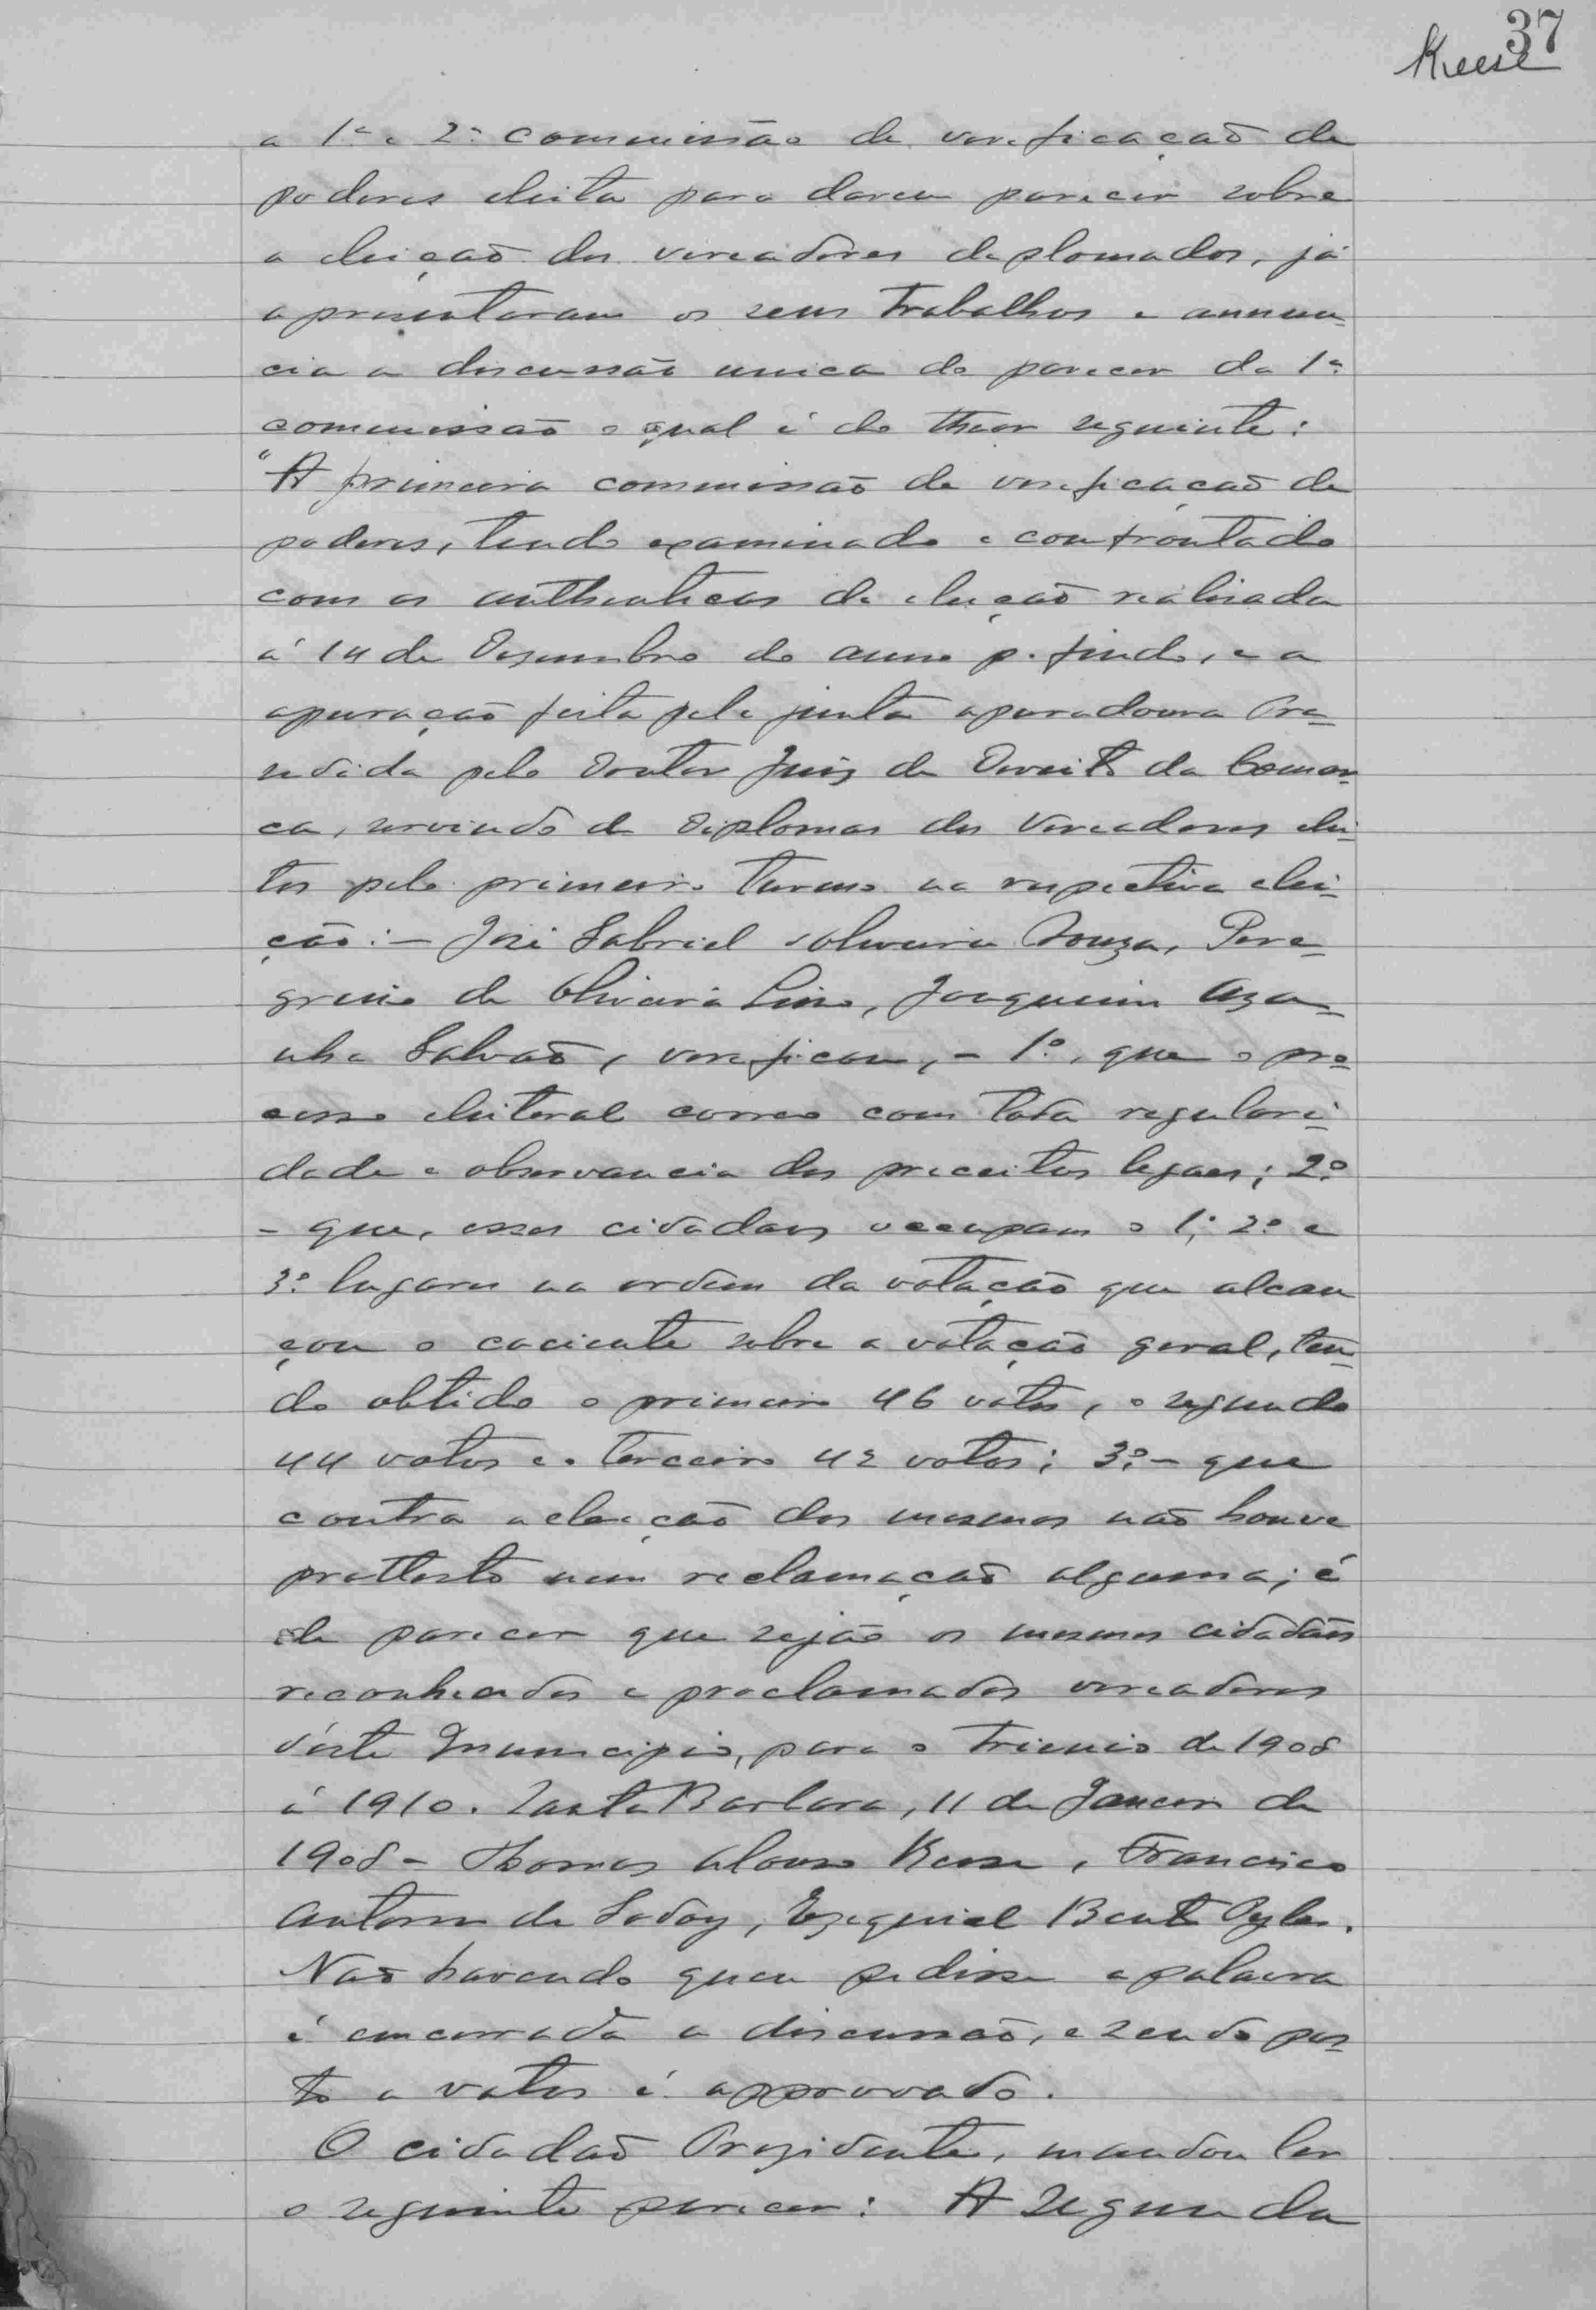 37
Keese
a 1ª e 2ª commissão de verificação de
poderes eleita para darem parecer sobre
a eleição dos vereadores deplomados, já
apresentaram os seus trabalhos e annun-
cia a discussão unica do parecer da 1ª
commissão o qual é do theor seguinte:
"A primeira commissão de verificação de
poderes, tendo examinado e confrontado
com as authenticas da eleição realisada
á 14 de Dezembro do anno p. findo, e a
apuração feita pela junta apuradoura Pre-
sedida pelo Doutor Juiz de Direito da Comar-
ca, servindo de Diplomas dos Vereadores elei-
tos pelo primeiro turno na respectiva elei-
ção: - José Gabriel Oliveira Souza, Pere-
grino de Oliveira Lino, Joaquim Aza-
nha Galvão, verificou, - 1º, que o pro-
cesso eleitoral correo com toda regulari-
dade e observancia dos preceitos legaes; 2º
- que, esses cidadãos occupam o 1º, 2º e
3º lugares na ordem da votação que alcan
çou o cociente sobre a votação geral, ten-
do obtido o primeiro 46 votos, o segundo
44 votos e o terceiro 42 votos; 3º - que
contra a eleição dos mesmos não houve
prottesto nem reclamação alguma; é
de parecer que sejão os mesmos cidadãos
reconhecidos e proclamados vereadores
d'este Municipio, para o trienio de 1908
á 1910. Santa Barbara, 11 de Janeiro de
1908 - Thomas Alonso Keese, Francisco
Antonio de Godoy, Ezequiel Bento Pyles.
Não havendo quem pedisse a palavra
é encerrada a discussão, e sendo pos-
to a votos é approvado.
O cidadão Prezidente, mandou ler
o seguinte parecer: A Segunda